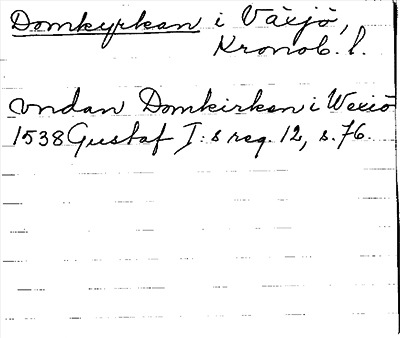 Domkyrkan i Växjö,
Kronob. l.
vndan Domkirken i Wexiö
1538 Gustaf I:s reg. 12, s. 76.